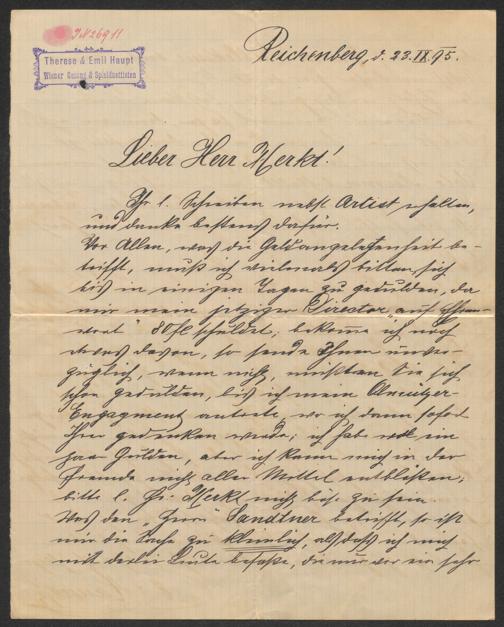 IN 26911
Therese & Emil Haupt
Wiener Gesang & Spielduettisten
Reichenberg, d. 23.IX.95.
Lieber Herr Merkt!
Ihr l. Schreiben nebst Artist erhalten,
und danke bestens dafür.
Vor Allen, was die Geldangelegenheit be-
trifft, muß ich vielmals bitten sich
bis in einigen Tagen zu gedulden, da
mir mein jetziger Director „auf Ehren-
wort" 80 fl schuldet; bekomme ich noch
etwas davon, so sende Ihnen unver-
züglich, wenn nicht, müßten Sie sich
schon gedulden, bis ich mein
Engagment antrete, wo ich dann sofort
Ihrer gedenken werde; ich hab wol ein
paar Gulden, aber ich kann mich in der
Fremde nicht aller Mittel entblößen;
bitte l. Hr. Merkt nicht bös zu sein.
Was den „Herrn" Sandtner betrifft, so ist
mir die Sache zu kleinlich, als daß ich mich
mit derlei Leute befaße, die nur vor ein sehr